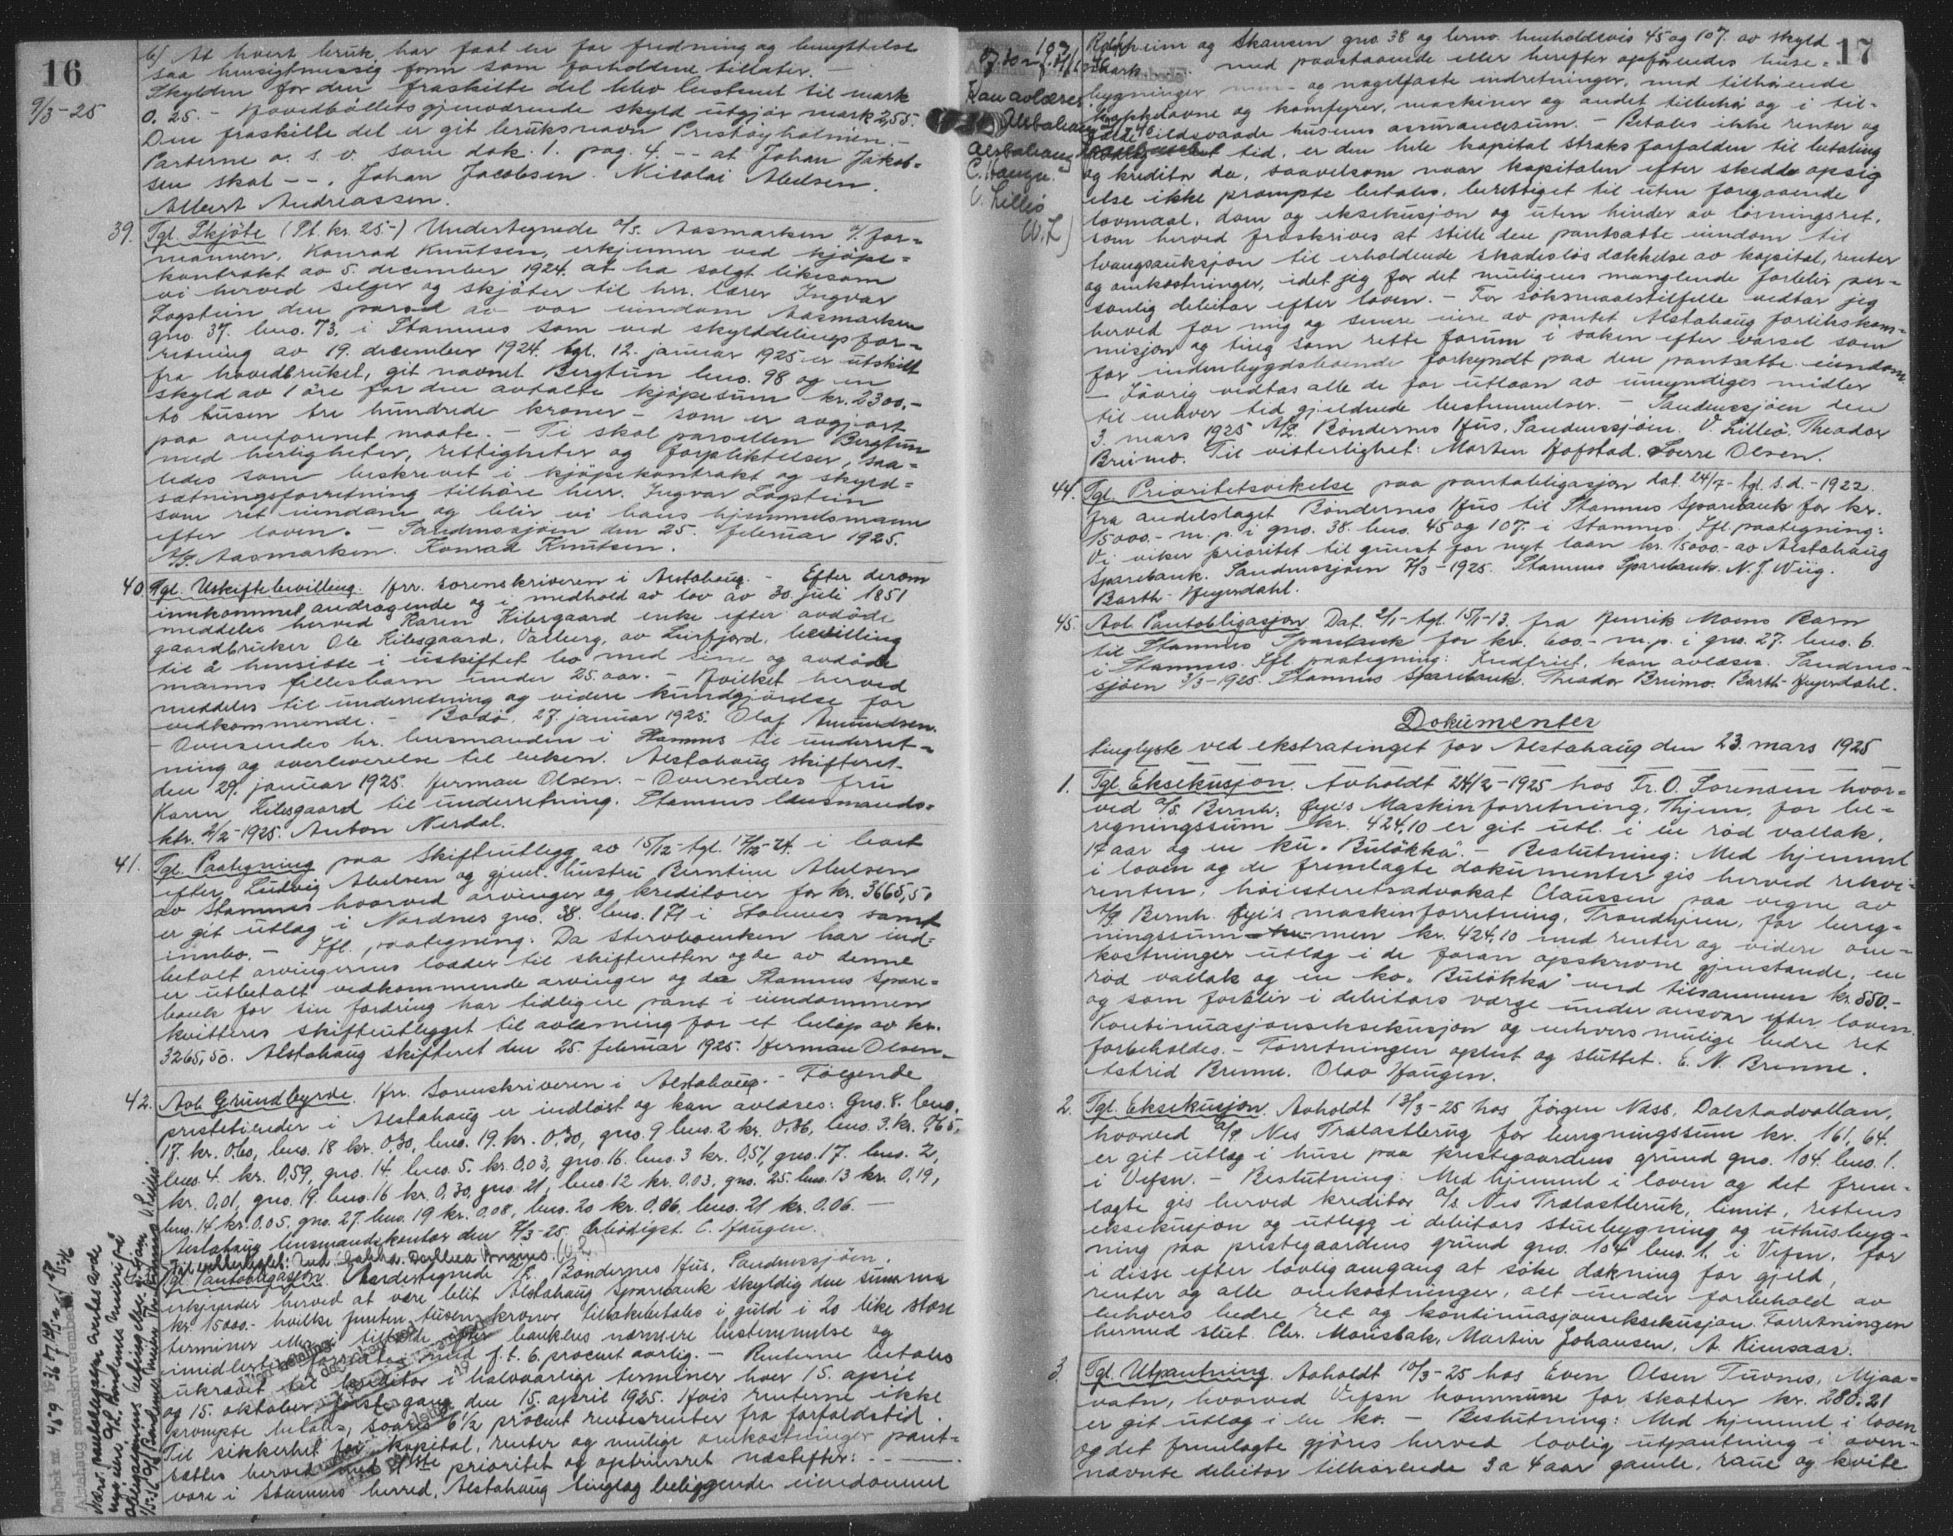 16
9/3-25
6) At hvert bruk har faat en for fredning og benyttelse
saa hensigtmessig form som forholdene tillater. —
Skylden for den fraskilte del blev bestemt til mark
0.25. - Hovedbøllets gjenværende skyld utgjør mark 2,55.
Den fraskilte del er git bruksnavn Prestøyholmen. -
Parterne o. s. v. som dok. 1. pag. 4. -- at Johan Jakob-
sen skal --. Johan Jacobsen. Nicolai Abelsen.
Albert Andreassen.
39. Tgl. Skjøte (Pt. kr. 25-) Undertegnede A/S. Aasmarken v/ for-
mannen, Konrad Knutsen, erkjenner ved kjøpe-
kontrakt av 5. december 1924 at ha solgt likesom
vi herved selger og skjøter til hr. lærer Ingvar
Løgstein den parsel av vor eiendom Aasmarken
gno. 37. bno. 73, i Stamnes som ved skylddelingsfor-
retning av 19. december 1924 tgl. 12. januar 1925 er utskilt
fra hovedbruket, git navnet Bergtun bno. 98 og en
skyld av 1 øre for den avtalte kjøpesum kr. 2300.-
to tusen tre hundrede kroner - som er avgjort
paa omforenet maate. - Ti skal parsellen Bergtun
med herligheter, rettigheter og forpliktelser, saa-
ledes som beskrevet i kjøpekontrakt og skyld-
sætningsforretning tilhøre herr. Ingvar Løgstein
som ret eiendom og blir vi hans hjemmelsmann
efter loven. - Sandnessjøen den 25. februar 1925.
A/S. Aasmarken. Konrad Knutsen.
40. Tgl. Uskiftebevilling. Hrr. sorenskriveren i Alstahaug. - Efter derom
innkommet andragende og i medhold av lov av 30. juli 1851
meddeles herved Karen Kilsgaard enke efter avdøde
gaardbruker Ole Kilsgaard, Valberg, av Leirfjord, bevilling
til å hensidde i uskiftet bo med sine og avdøde
manns fellesbarn under 25 aar. - Hvilket herved
meddeles til underretning og videre kundgjørelse for
vedkommende. - Bodø, 27. januar 1925. Olaf Amundsen.
- Oversendes hr. lensmanden i Stamnes til underret-
ning og overleverelse til enken. Alstahaug skifteret
den 29. januar 1925. Herman Olsen. - Oversendes fru
Karen Kilsgaard til underretning. Stamnes lensmands-
ktr. 2/2-1925. Anton Nerdal.
41. Tgl. Paategning paa skifteutlegg av 15/12- tgl. 17/12-24. i boet
efter Ludvig Abelsen og gjenl. hustru Berntine Abelsen
av Stamnes hvorved arvinger og kreditorer for kr. 3665,50
er git utlæg i Nordnes gno. 38. bno. 171 i Stamnes samt
innbo. - Ifl. paategning: Da stervboenken har ind-
betalt arvingernes lodder til skifteretten og de av denne
er utbetalt vedkommende arvinger og da Stamnes spare-
bank for sin fordring har tidligere pant i eiendommen
kvitteres skifteutlegget til avlæsning for et beløp av kr.
3265,50. Alstahaug skifteret den 25. februar 1925. Herman Olsen.
42. Avl. Grundbyrde. Hrr. Sorenskriveren i Alstahaug. - Følgende
prestetiender i Alstahaug er indløst og kan avlæses: Gno. 8. bno.
17. kr. 0.60, bno. 18 kr. 0,30, bno. 19. kr. 0,30, gno. 9 bno. 2 kr. 0,36, bno. 3. kr. 0,65,
bno. 4. kr. 0,59, gno. 14. bno. 5. kr. 0,03, gno. 16. bno. 3 kr. 0,51, gno. 17. bno. 2,
kr. 0,01, gno. 19. bno. 16 kr. 0,30, gno. 21, bno. 12 kr. 0,03, gno. 25. bno. 13 kr. 0,19,
bno. 14 kr. 0.05, gno. 27. bno. 19 kr. 0,08, bno. 20 kr. 0,06 bno. 21 kr. 0.06. —
Alstahaug lensmandskontor den 7/3-25 ærbødigst. C. Haugen.
Til vitterlighet:
Tgl. Pantobligasjon. Undertegnede A/L. Bøndernes Hus, Sandnessjøen,
erkjender herved at være blit Alstahaug sparebank skyldig den summa
kr. 15000.- hvilke femten tusen kroner tilbakebetales i guld i 20 like store
terminer eller i tilfælde efter bankens nærmere bestemmelse og
imidlertid forrentes med f. t. 6. procent aarlig. - Renterne betales
ukrævet til kreditor i halvaarlige terminer hver 15. april
og 15. oktober, første gang den 15. april 1925. Hvis renterne ikke
prompte betales, svares 6 1/2 procent rentesrenter fra forfaldstid.
Til sikkerhet for kapital, renter og mulige omkostninger pant-
sættes herved med 1ste prioritet og oprunset næstefter: - - - -
vore i Stamnes herred, Alstahaug tinglag beliggende eiendommer
17
Kan avlæses
Alstahaug
C. Haugen
V. Lillejø
Rolfheim og Skansen gno 38 og brno. henholdsvis 45 og 107. av skyld
mark med paastaaende eller herefter opførendes huse-
bygninger mur- og nagelfaste indretninger, med tilhørende
kakkelovne og komfyrer, maskiner og andet tilbehør og i til-
fælde ildsvaade husenes assurancesum. - Betales ikke renter og
avdrag i ret tid, er den hele kapital straks forfalden til betaling
og kreditor da, saavelsom naar kapitalen efter skedd opsig-
else ikke prompte betales, berettiget til uten foregaaende
lovmaal, dom og eksekusjon og uten hinder av løsningsret,
som herved fraskrives at stille den pantsatte eiendom til
tvangsauksjon til erholdende skadesløs dækkelse av kapital, renter
og omkostninger, idet jeg for det muligens manglende forblir per-
sonlig debitor efter loven. - For søksmaalstilfelle vedtar jeg
herved for mig og senere eiere av pantet Alstahaug forlikskom-
misjon og ting som rette forum i saken efter varsel som
for indenbygdsboende forkyndt paa den pantsatte eiendom
- Iøvrig vedtas alle de for utlaan av umyndiges midler
til enhver tid gjeldende bestemmelser. - Sandnessjøen den
3. mars 1925 A/L. Bøndernes Hus, Sandnessjøen. V. Lillejø. Theodor
Breimo. Til vitterlighet: Morten Hofstad. Sverre Olsen.
44. Tgl. Prioritetsvikelse paa pantobligasjon dat. 24/7- tgl. s.d. - 1922
fra andelslaget Bøndernes Hus til Stamnes Sparebank for kr.
15000.- m. p. i gno. 38. bno. 45 og 107. i Stamnes. Ifl. paategning:
Vi viker prioritet til gunst for nyt laan kr. 15000.- av Alstahaug
Sparebank. Sandnessjøen 7/3-1925. Stamnes Sparebank. N. J. Wiig.
Barth-Heyerdahl.
45. Avl. Pantobligasjon Dat. 2/1- tgl. 15/1-13. fra Henrik Moens Barn
til Stamnes Sparebank for kr. 600.- m.p. i gno. 27. bno. 6.
i Stamnes. Ifl. paategning: Indfriet, kan avlæses. Sandnes-
sjøen 3/3-1925. Stamnes Sparebank. Theodor Breimo. Barth-Heyerdahl.
Dokumenter
tinglyste ved ekstratinget for Alstahaug den 23. mars 1925
1. Tgl. Eksekusjon. Avholdt 24/2-1925 hos Fr. O. Sørensen hvor-
ved A/S. Bernh. Øyes Maskinforretning, Thjem, for be-
regningssum kr. 424,10 er git utl. i en rød vallak,
17 aar og en ku "Buløkka". - Beslutning: Med hjemmel
i loven og de fremlagte dokumenter gis herved rekvi-
renten, høiesteretsadvokat Claussen paa vegne av
A/S Bernh. Øyes maskinforretning, Trondhjem, for bereg-
ningssummen kr. 424,10 med renter og videre om-
kostninger utlæg i de foran opskrevne gjenstande, en
rød vallak og en ko "Buløkka" verd tilsammen kr 550.-
og som forblir i debitors værge under ansvar efter loven.
Kontinuasjonseksekusjon og enhvers mulige bedre ret
forbeholdes. - Forretningen oplest og sluttet. E. N. Brenne.
Astrid Brenne. Olav Haugen.
2. Tgl. Eksekusjon. Avholdt 13/3-25 hos Jørgen Næss, Dolstadvollan,
hvorved A/S Nes Trælastbruk for beregningssum kr. 161,64.
er git utlæg i huse paa prestegaardens grund gno. 104. bno. 1.
i Vefsn. - Beslutning: Med hjemmel i loven og det frem-
lagte gis herved kreditor A/S. Nes Trælastbruk, limit, restens
eksekusjon og utlegg i debitors stuebygning og uthusbyg-
ning paa prestegaardens grund gno. 104 bno. 1. i Vefsn. for
i disse efter lovlig omgang at søke dækning for gjeld,
renter og alle omkostninger, alt under forbehold av
enhvers bedre ret og kontinuasjonseksekusjon. Forretningen
hermed slut. Chr. Marisbak, Martin Johansen, A. Kimsaas.
3. Tgl. Utpantning. Avholdt 10/3-25 hos Even Olsen Tuvnes, Mjaa-
vatn, hvorved Vefsn kommune for skatter kr. 280.21
er git utlæg i en ko. - Beslutning: Med hjemmel i loven
og det fremlagte gjøres herved lovlig utpantning i oven-
nævnte debitor tilhørende 3 a 4 aar gamle, raue og kvite